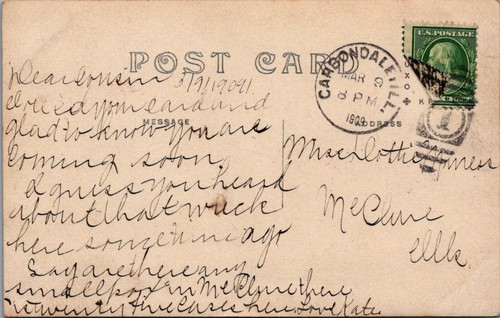 POST CARD
U.S. POSTAGE
CARBONDALE, ILL.
MAR 9
8 PM
1909
MESSAGE
ADDRESS
Dear Cousin 3/9/1909.
Rec'd your card and
glad to know you are
coming soon.
I guess you heard
about that wreck
here sometime ago
Say are there any
small pox in McClure there
is twenty five cases here, Love Kate.
Miss Lottie
McClure
Ills.